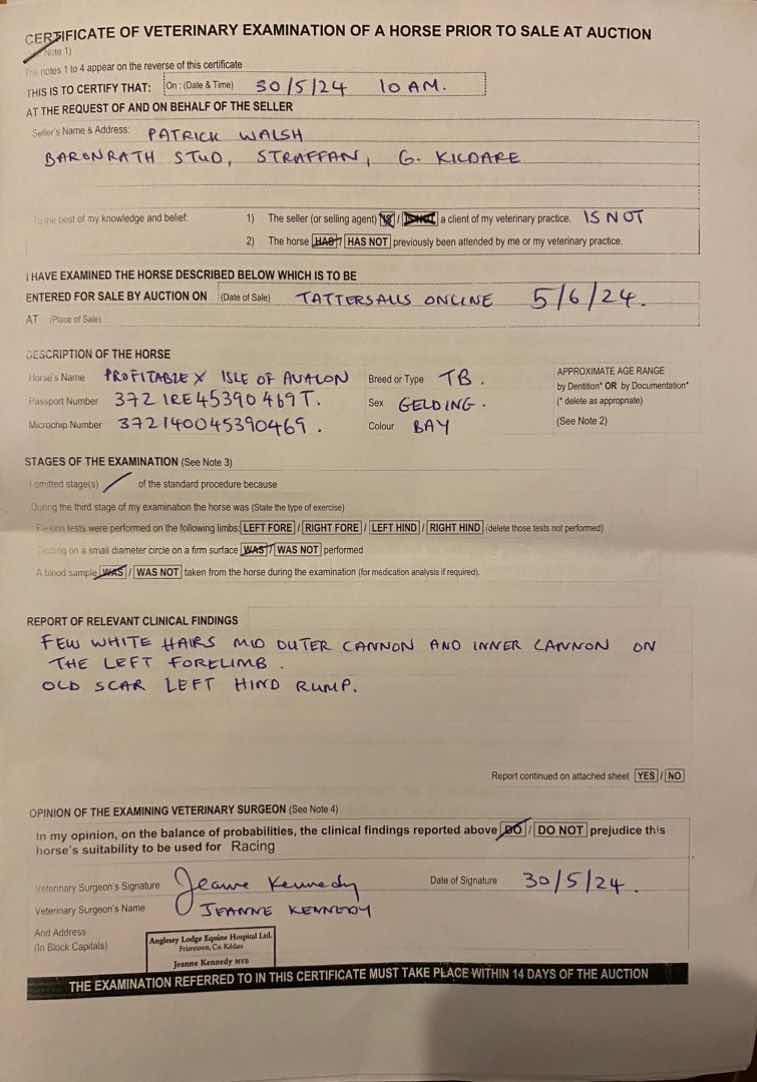 CERTIFICATE OF VETERINARY EXAMINATION OF A HORSE PRIOR TO SALE AT AUCTION
Note 1)
The notes 1 to 4 appear on the reverse of this certificate
THIS IS TO CERTIFY THAT: On : (Date & Time) 30/5/24 10 AM.
AT THE REQUEST OF AND ON BEHALF OF THE SELLER
Seller's Name & Address: PATRICK WALSH
BARONRATH STUD, STRAFFAN, G. KILDARE
To the best of my knowledge and belief: 1) The seller (or selling agent) IS / IS NOT a client of my veterinary practice. IS NOT
2) The horse HAS / HAS NOT previously been attended by me or my veterinary practice.
I HAVE EXAMINED THE HORSE DESCRIBED BELOW WHICH IS TO BE
ENTERED FOR SALE BY AUCTION ON (Date of Sale) TATTERSALLS ONLINE 5/6/24.
AT (Place of Sale)
DESCRIPTION OF THE HORSE
Horse's Name PROFITABLE X ISLE OF AVALON Breed or Type TB. APPROXIMATE AGE RANGE
by Dentition* OR by Documentation*
Passport Number 372 IRE45390469T. Sex GELDING. (* delete as appropriate)
Microchip Number 372140045390469. Colour BAY (See Note 2)
STAGES OF THE EXAMINATION (See Note 3)
I omitted stage(s) of the standard procedure because
During the third stage of my examination the horse was (State the type of exercise)
Flexion tests were performed on the following limbs: LEFT FORE / RIGHT FORE / LEFT HIND / RIGHT HIND (delete those tests not performed)
Trotting on a small diameter circle on a firm surface WAS / WAS NOT performed
A blood sample WAS / WAS NOT taken from the horse during the examination (for medication analysis if required).
REPORT OF RELEVANT CLINICAL FINDINGS
FEW WHITE HAIRS MID OUTER CANNON AND INNER CANNON ON
THE LEFT FORELIMB.
OLD SCAR LEFT HIND RUMP.
Report continued on attached sheet YES / NO
OPINION OF THE EXAMINING VETERINARY SURGEON (See Note 4)
In my opinion, on the balance of probabilities, the clinical findings reported above DO / DO NOT prejudice this
horse's suitability to be used for Racing
Veterinary Surgeon's Signature Jeanne Kennedy Date of Signature 30/5/24.
Veterinary Surgeon's Name JEANNE KENNEDY
And Address
(In Block Capitals)
Anglesey Lodge Equine Hospital Ltd.
Friarstown, Co. Kildare
Jeanne Kennedy MVB
THE EXAMINATION REFERRED TO IN THIS CERTIFICATE MUST TAKE PLACE WITHIN 14 DAYS OF THE AUCTION